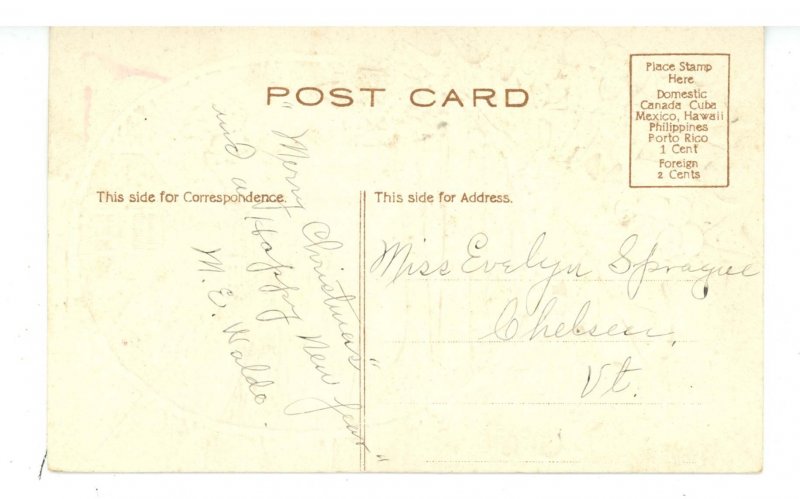 POST CARD
Place Stamp
Here
Domestic
Canada Cuba
Mexico, Hawaii
Philippines
Porto Rico
1 Cent
Foreign
2 Cents
This side for Correspondence.
This side for Address.
"Merry Christmas"
and a "Happy New Year"
M. E. Waldo.
Miss Evelyn Sprague
Chelsea,
Vt.